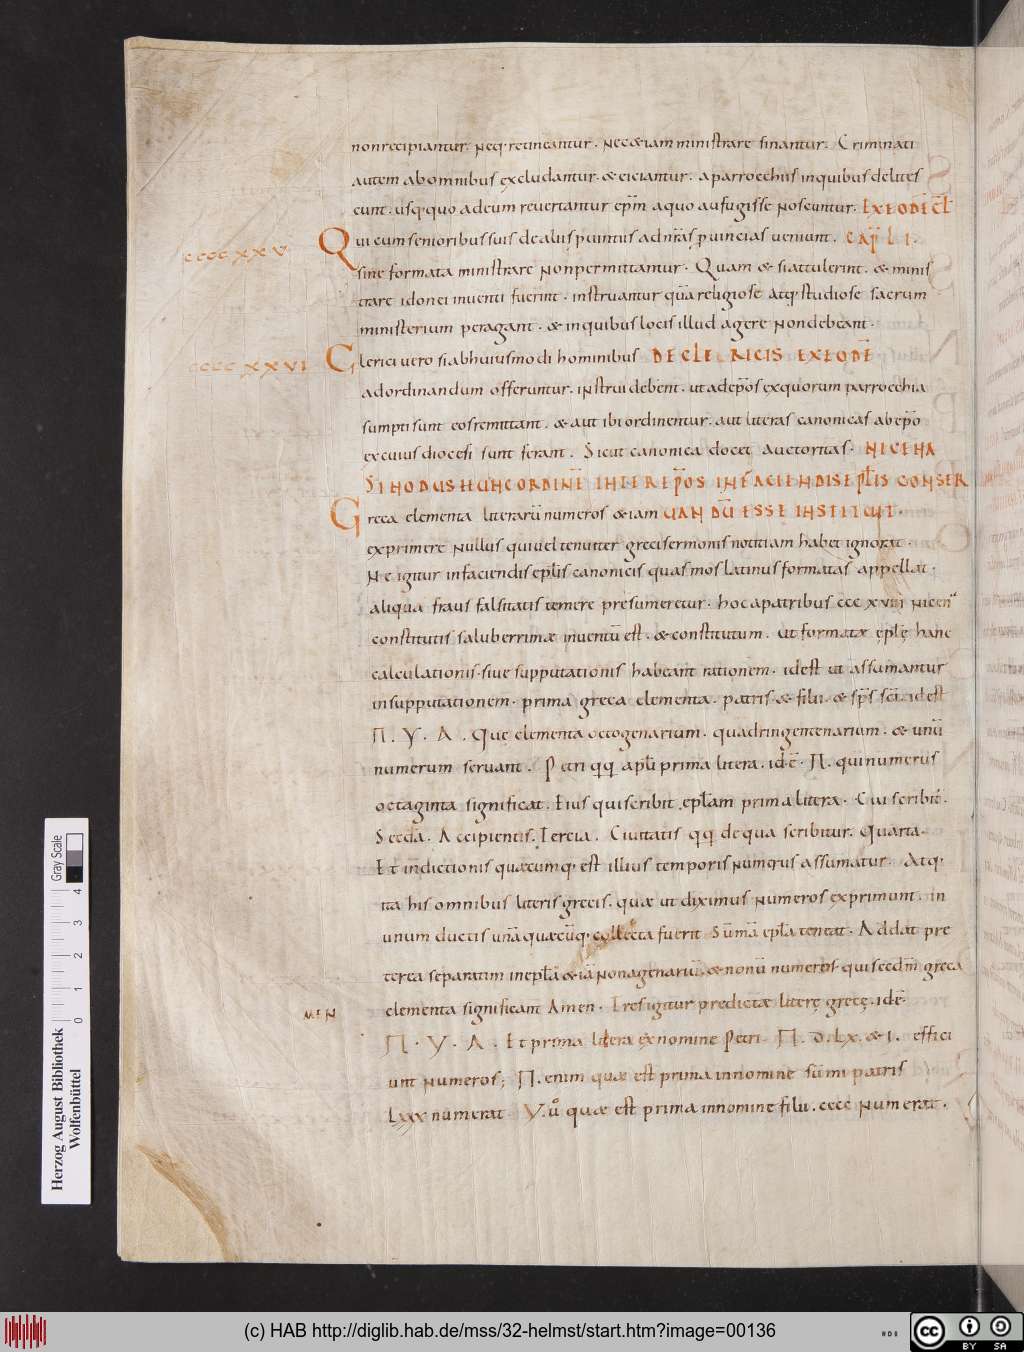 non recipiantur. Neq; retineantur. Nec &iam ministrare sinantur. Criminati
autem abomnibus excludantur. & eiciantur. aparrocchiis inquibus delites
cunt. usq; quo adeum reuertantur ep̄m aquo aufugisse noscuntur. EX EODĒ CL̄
ccccxxv
Qui cum senioribus suis dealiis puintiis ad nr̄as puincias ueniunt. CAP̄L I.
sine formata ministrare non permittantur. Quam & si attulerint. & minis
trare idonei inuenti fuerint. instruantur qua religiose atq; studiose sacrum
ministerium peragant. & inquibus locis illud agere non debeant.
ccccxxvi
Clerici uero siabhuiusmodi hominibus DE CLERICIS EX EODĒ
adordinandum offeruntur. instrui debent. ut adep̄os exquorum parrocchia
sumpti sunt eos remittant. & aut ibi ordinentur. aut literas canonicas abep̄o
excuius diocesi sunt ferant. Sicut canonica docet auctoritas. NICENA
SINODUS HUNC ORDINĒ INTER EP̄OS IN FACIENDIS EPL̄IS CONSER
Greca elementa literarū numeros &iam UANDŪ ESSE INSTITUIT.
exprimere nullus qui uel tenuiter greci sermonis notitiam habet ignorat.
Ne igitur infaciendis epl̄is canonicis quas mos latinus formatas appellat.
aliqua fraus falsitatis temere presumeretur. hoc apatribus cccxviii nicen
constitutis saluberrimæ inuentū est. & constitutum. ut formatæ epl̄ę hanc
calculationis. siue supputationis habeant rationem. idest ut assumantur
in supputationem. prima greca elementa. patris. & filii. & sp̄s sc̄i. idest
Π. Υ. Α. Que elementa octogenarium. quadringentenarium. & unū
numerum seruant. Petri qq apl̄i prima litera. id ē. Π. qui numerus
octaginta significat. Eius qui scribit epl̄am prima litera. Cui scribit̄.
Secda. Accipientis. Tercia. Ciuitatis qq dequa scribitur. Quarta.
Et indictionis quæcumq; est illius temporis numerus assumatur. Atq;
ita his omnibus literis grecis. quæ ut diximus numeros exprimunt. in
unum ductis unā quæcūq; collecta fuerit Sūmā epl̄a teneat. Addat pre
terea separatim inepl̄a &iā nonagenariū. & nonū numeros. qui secdm̄ greca
elementa significant Amen. Tres igitur predictæ literę grecę. id ē.
Π. Υ. Α. Et prima litera ex nomine Petri. Π. D. LX. & I. effici
unt numeros; Π. enim quæ est prima in nomine sūmi patris
LXXX numerat Υ. ū quæ est prima innomine filii. cccc numerat.
Gray Scale
0 1 2 3 4
Herzog August Bibliothek
Wolfenbüttel
(c) HAB http://diglib.hab.de/mss/32-helmst/start.htm?image=00136
cc BY SA